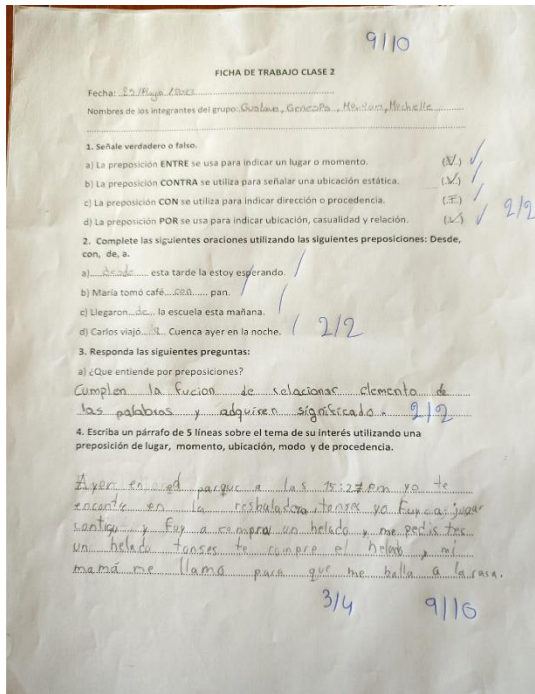 9/10
FICHA DE TRABAJO CLASE 2
Fecha:
Nombres de los integrantes del grupo: Gustavo, Genesis, Mechelle
1. Señale verdadero o falso.
a) La preposición ENTRE se usa para indicar un lugar o momento. (V)
b) La preposición CONTRA se utiliza para señalar una ubicación estática. (V)
c) La preposición CON se utiliza para indicar dirección o procedencia. (F)
d) La preposición POR se usa para indicar ubicación, casualidad y relación. (V) 2/2
2. Complete las siguientes oraciones utilizando las siguientes preposiciones: Desde,
con, de, a.
a) desde esta tarde la estoy esperando.
b) María tomó café con pan.
c) Llegaron de la escuela esta mañana.
d) Carlos viajó a Cuenca ayer en la noche. 2/2
3. Responda las siguientes preguntas:
a) ¿Que entiende por preposiciones?
Cumplen la fucion de relacionar elemento de
las palabras y adquiren significado. 2/2
4. Escriba un párrafo de 5 líneas sobre el tema de su interés utilizando una
preposición de lugar, momento, ubicación, modo y de procedencia.
Ayer en el parque a las 15:27 pm yo te
encontre en la resbaladora, tonses yo fuy a jugar
contigo y fuy a comprar un helado y me pedistes
un helado tonses te compre el helado y mi
mamá me llamo para que me balla a la casa.
3/4 9/10